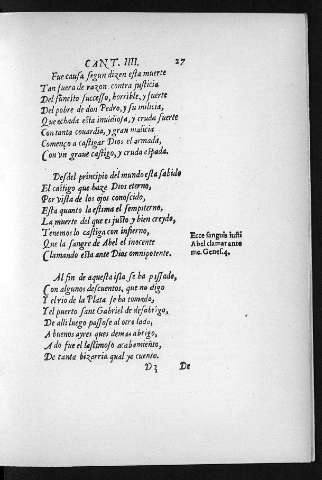 CANT. IIII. 27
Fue causa segun dizen esta muerte
Tan fuera de razon contra justicia
Del súncito successo, horrible, y fuerte
Del pobre de don Pedro, y su milicia,
Que echada esta inuidiosa, y cruda suerte
Con tanta couardia, y gran malicia
Començo a castigar Dios el armada,
Con vn graue castigo, y cruda espada.
Desdel principio del mundo esta sabido
El castigo que haze Dios eterno,
Por vista de los ojos conoscido,
Esta quanto la estima el sempiterno,
La muerte del que es justo y bien creydo,
Tenemoslo castiga con infierno,
Que la sangre de Abel el inocente
Clamando esta ante Dios omnipotente.
Ecce sanguis iusti
Abel clamat ante
me. Genes. 4.
Al fin de aquesta isla se ha passado,
Con algunos descuentos, que no digo
Y el rio de la Plata se ha tomado,
Y el puerto sant Gabriel de desabrigo,
De alli luego passose al otro lado,
A buenos ayres ques de mas abrigo,
A do fue el lastimoso acabamiento,
De tanta bizarria qual ya cuento.
D3 De